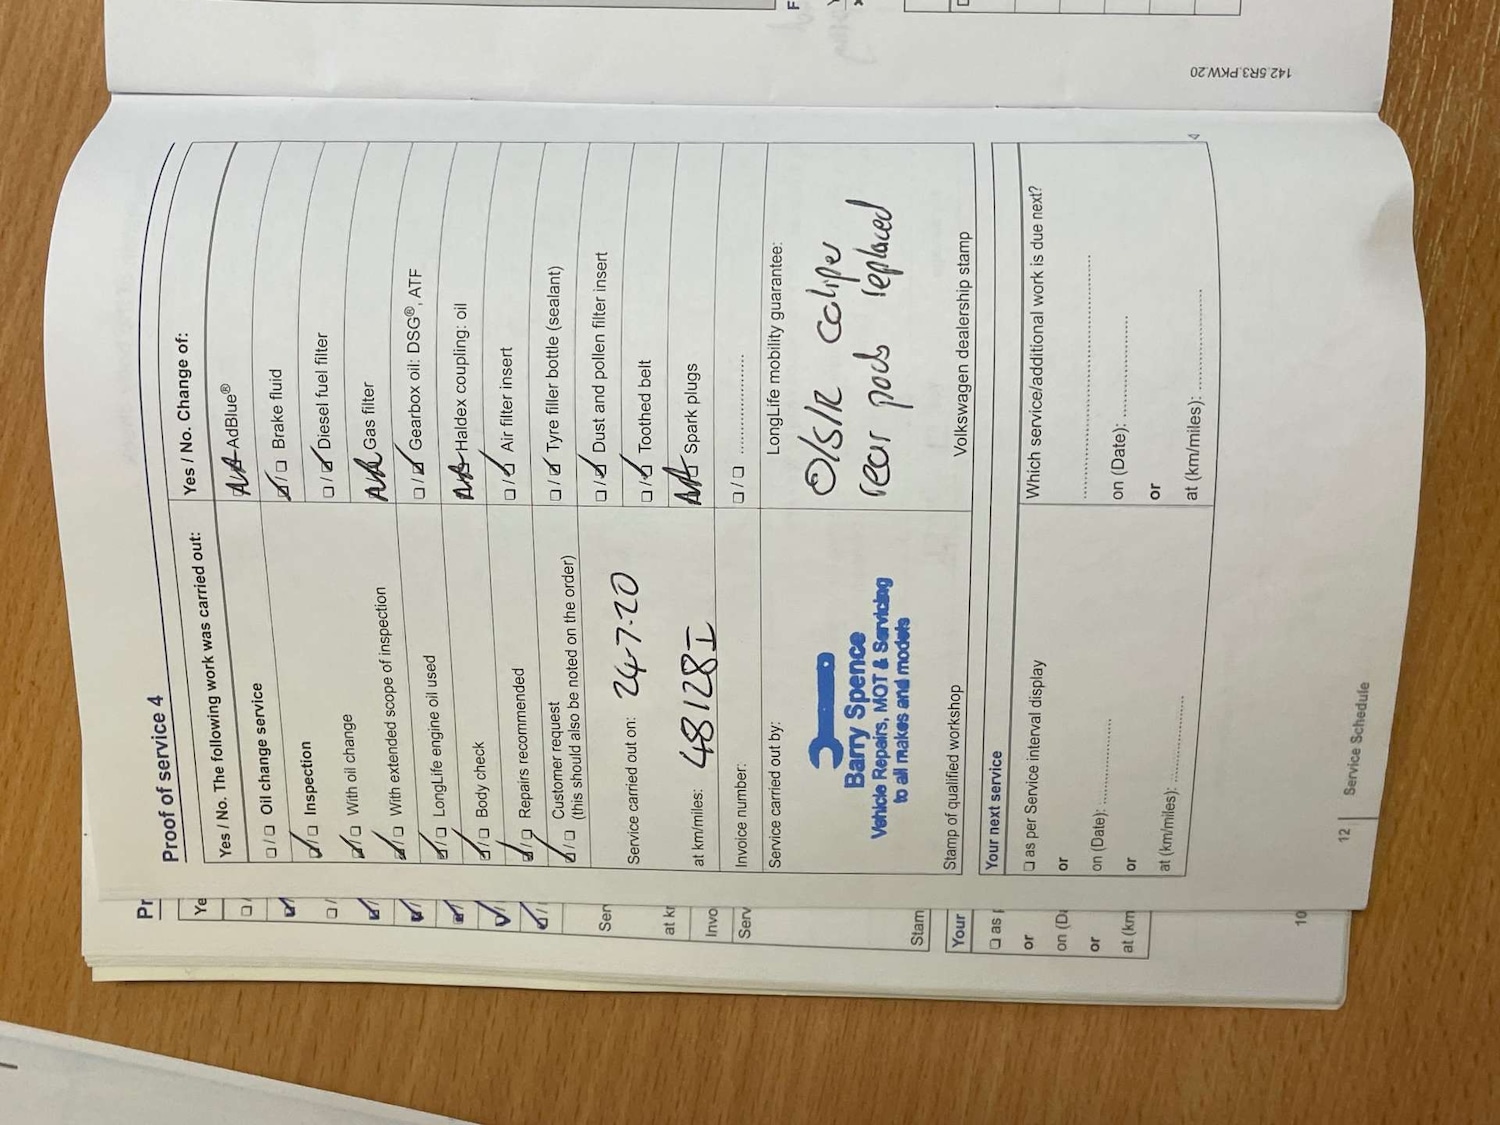 Proof of service 4
Yes / No. The following work was carried out:
☐/☐ Oil change service
☑/☐ Inspection
☑/☐ With oil change
☑/☐ With extended scope of inspection
☑/☐ LongLife engine oil used
☑/☐ Body check
☑/☐ Repairs recommended
☑/☐ Customer request
(this should also be noted on the order)
Service carried out on: 24-7-20
at km/miles: 48128
Invoice number:
Service carried out by:
Barry Spence
Vehicle Repairs, MOT & Servicing
to all makes and models
Stamp of qualified workshop
Yes / No. Change of:
AdBlue®
☑/☐ Brake fluid
☐/☑ Diesel fuel filter
Gas filter
☐/☑ Gearbox oil: DSG®, ATF
Haldex coupling: oil
☐/☑ Air filter insert
☐/☑ Tyre filler bottle (sealant)
☐/☑ Dust and pollen filter insert
☐/☑ Toothed belt
Spark plugs
☐/☐ ....................
LongLife mobility guarantee:
O/S/R Caliper
rear pads replaced
Volkswagen dealership stamp
Your next service
☐ as per Service interval display
or
on (Date): ....................
or
at (km/miles): ....................
Which service/additional work is due next?
........................................
on (Date): ....................
or
at (km/miles): ....................
12 | Service Schedule
142.5R3.PKW.20
Pr
Ye
Ser
at kr
Invo
Serv
Stam
Your
☐ as
or
on (Da
or
at (km
10